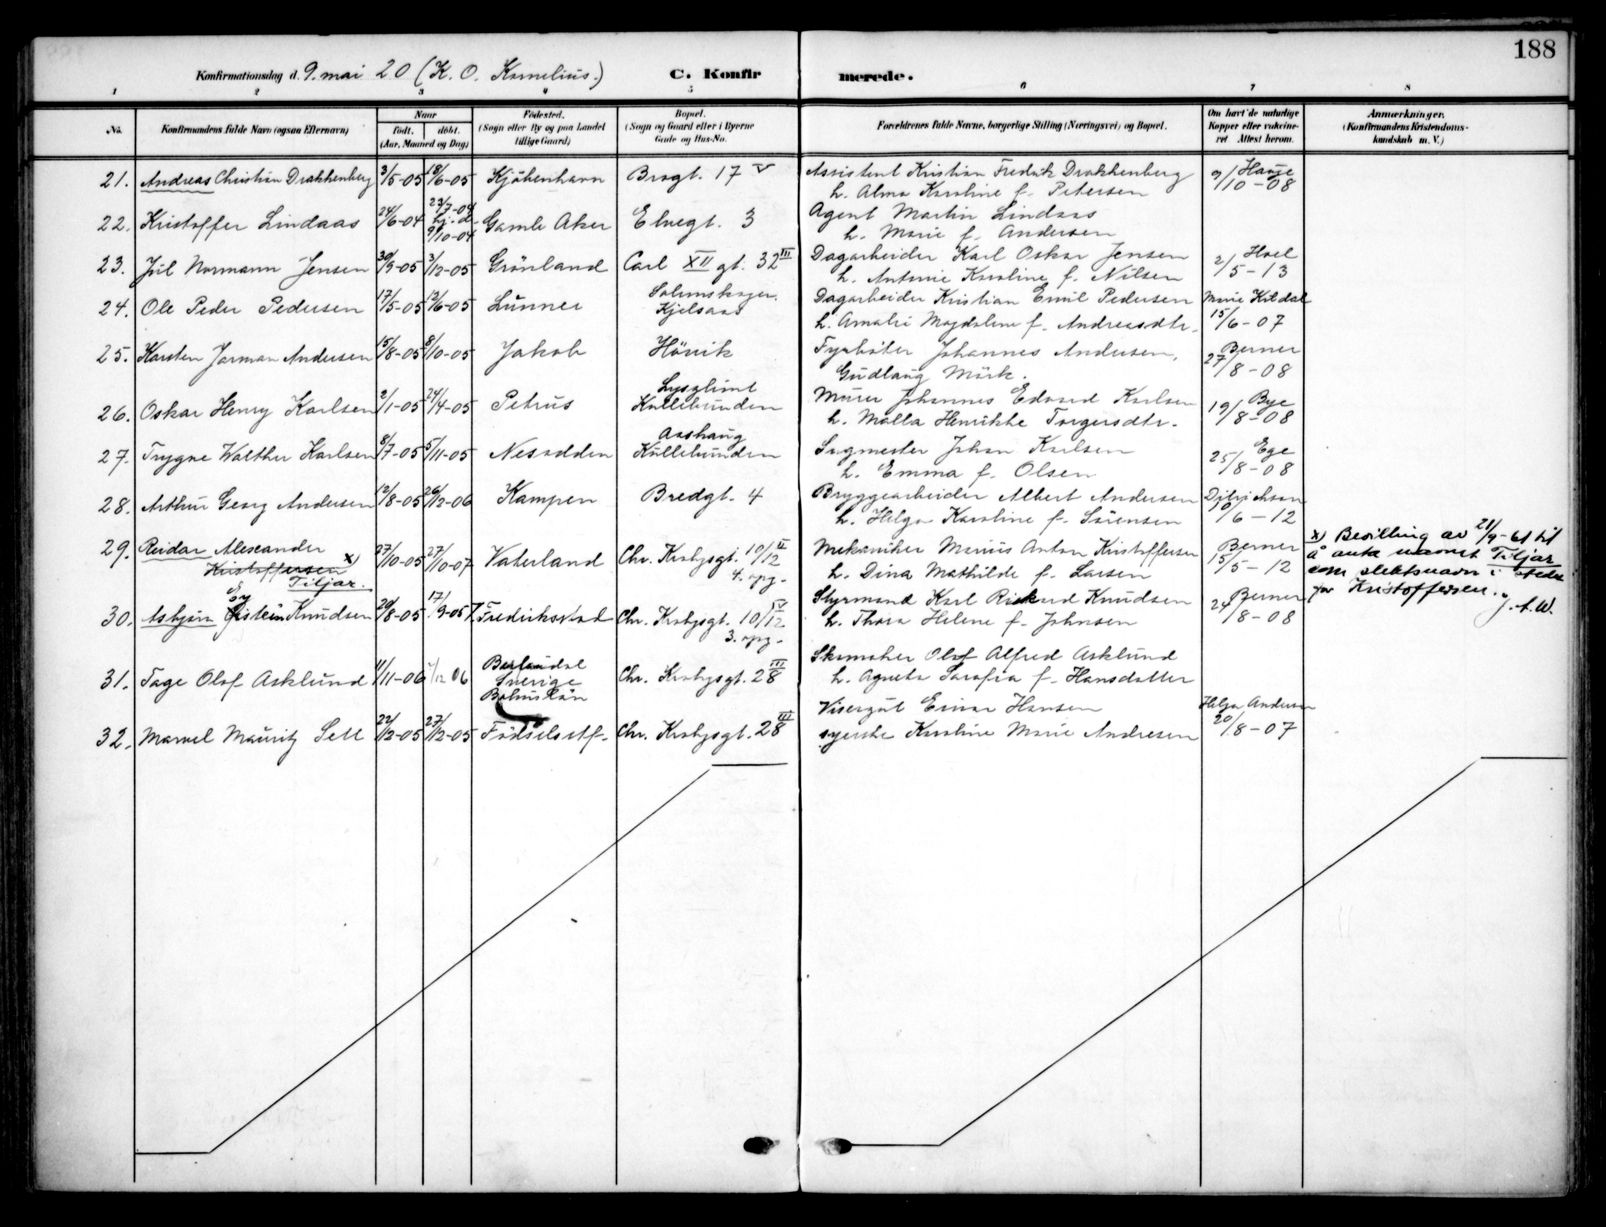 188
Konfirmationsdag d. 9. mai 20 (K. O. Kornelius.) C. Konfirmerede.
1 2 3 4 5 6 7 8
No. Konfirmandens fulde Navn (ogsaa Efternavn) Naar født. døbt. (Aar, Maaned og Dag) Fødested. (Sogn eller By og paa Landet tillige Gaard) Bopæl. (Sogn og Gaard eller i Byerne Gade og Hus-No. Forældrenes fulde Navne, borgerlige Stilling (Næringsvei) og Bopæl. Om havt de naturlige Kopper eller vaccineret Attest herom. Anmærkninger. (Konfirmandens Kristendomskundskab m. V.)
21. Andreas Christian Drakkenberg 3/5-05 18/6-05 Kjøbenhavn Brogt. 17 V Assistent Kristian Fredrik Drakkenberg Hauge
h. Alma Karoline f. Petersen 9/10-08
22. Kristoffer Lindaas 24/6-04 23/7-04 hj.d. 9/10-04 Gamle Aker Elvegt. 3 Agent Martin Lindaas
h. Marie f. Andersen
23. Jul Normann Jensen 30/9-05 3/12-05 Grønland Carl XII gt. 32 III Dagarbeider Karl Oskar Jensen Hoel
h. Antonie Karoline f. Nilsen 2/5-13
24. Ole Peder Pedersen 17/5-05 13/6-05 Lunner Kjelsaas Dagarbeider Kristian Emil Pedersen Marie Kildal
h. Amalie Magdalene f. Andreasdtr. 15/6-07
25. Karsten Jarman Andersen 15/8-05 8/10-05 Jakob Hövik Fyrbøter Johannes Andersen, Berner
Gudlaug Mörk. 27/8-08
26. Oskar Henry Karlsen 2/1-05 24/4-05 Petrus Lysglimt Kullebunden Murer Johannes Edvard Karlsen Bye
h. Malla Henrikke Torgersdtr. 19/8-08
27. Trygve Walther Karlsen 8/7-05 5/11-05 Nesodden Aashaug Kullebunden Sagmester Johan Karlsen Ege
h. Emma f. Olsen 25/8-08
28. Arthur Georg Andersen 12/8-05 26/12-06 Kampen Bredgt. 4 Bryggearbeider Albert Andersen
h. Helga Karoline f. Sørensen 10/6-12
29. Reidar Alexander Kristoffersen x) Tiljar. 27/10-05 27/10-07 Vaterland Chr. Krohgsgt. 10/12 II 4. opg. Mekaniker Marius Anton Kristoffersen Berner
h. Dina Mathilde f. Larsen 15/5-12
x) Bevilling av 21/9-61 til
å anta navnet Tiljar
som slektsnavn i stedet
for Kristoffersen.
J. A. W.
30. Asbjørn Øistein Knudsen 20/8-05 17/9-05 Fredrikstad Chr. Krohgsgt. 10/12 V 3. opg. Styrmand Karl Rikard Knudsen Berner
h. Thora Helene f. Johnsen 24/8-08
31. Tage Olof Asklund 11/11-06 1/12 06 Sverige Bohuslän Chr. Krohgsgt. 28 III Skomaker Olof Alfred Asklund
h. Agneta Sarafia f. Hansdatter
32. Marvel Mauritz Sell 22/12-05 27/12-05 Fødselsstf. Chr. Krohgsgt. 28 III Visergut Einar Hansen Helga Andersen
syerske Karoline Marie Andresen 20/8-07